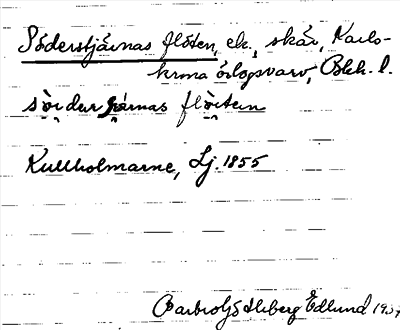 Söderstjärnas flöten, ek., skär, Karls-
krona örlogsvarv, Blek. l.
sö̀dərʃä̀rnas flö̀tən
Kullholmarne, Lj. 1855
Edlund